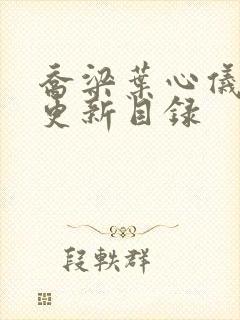 乔梁叶心仪
更新目录
段轶群